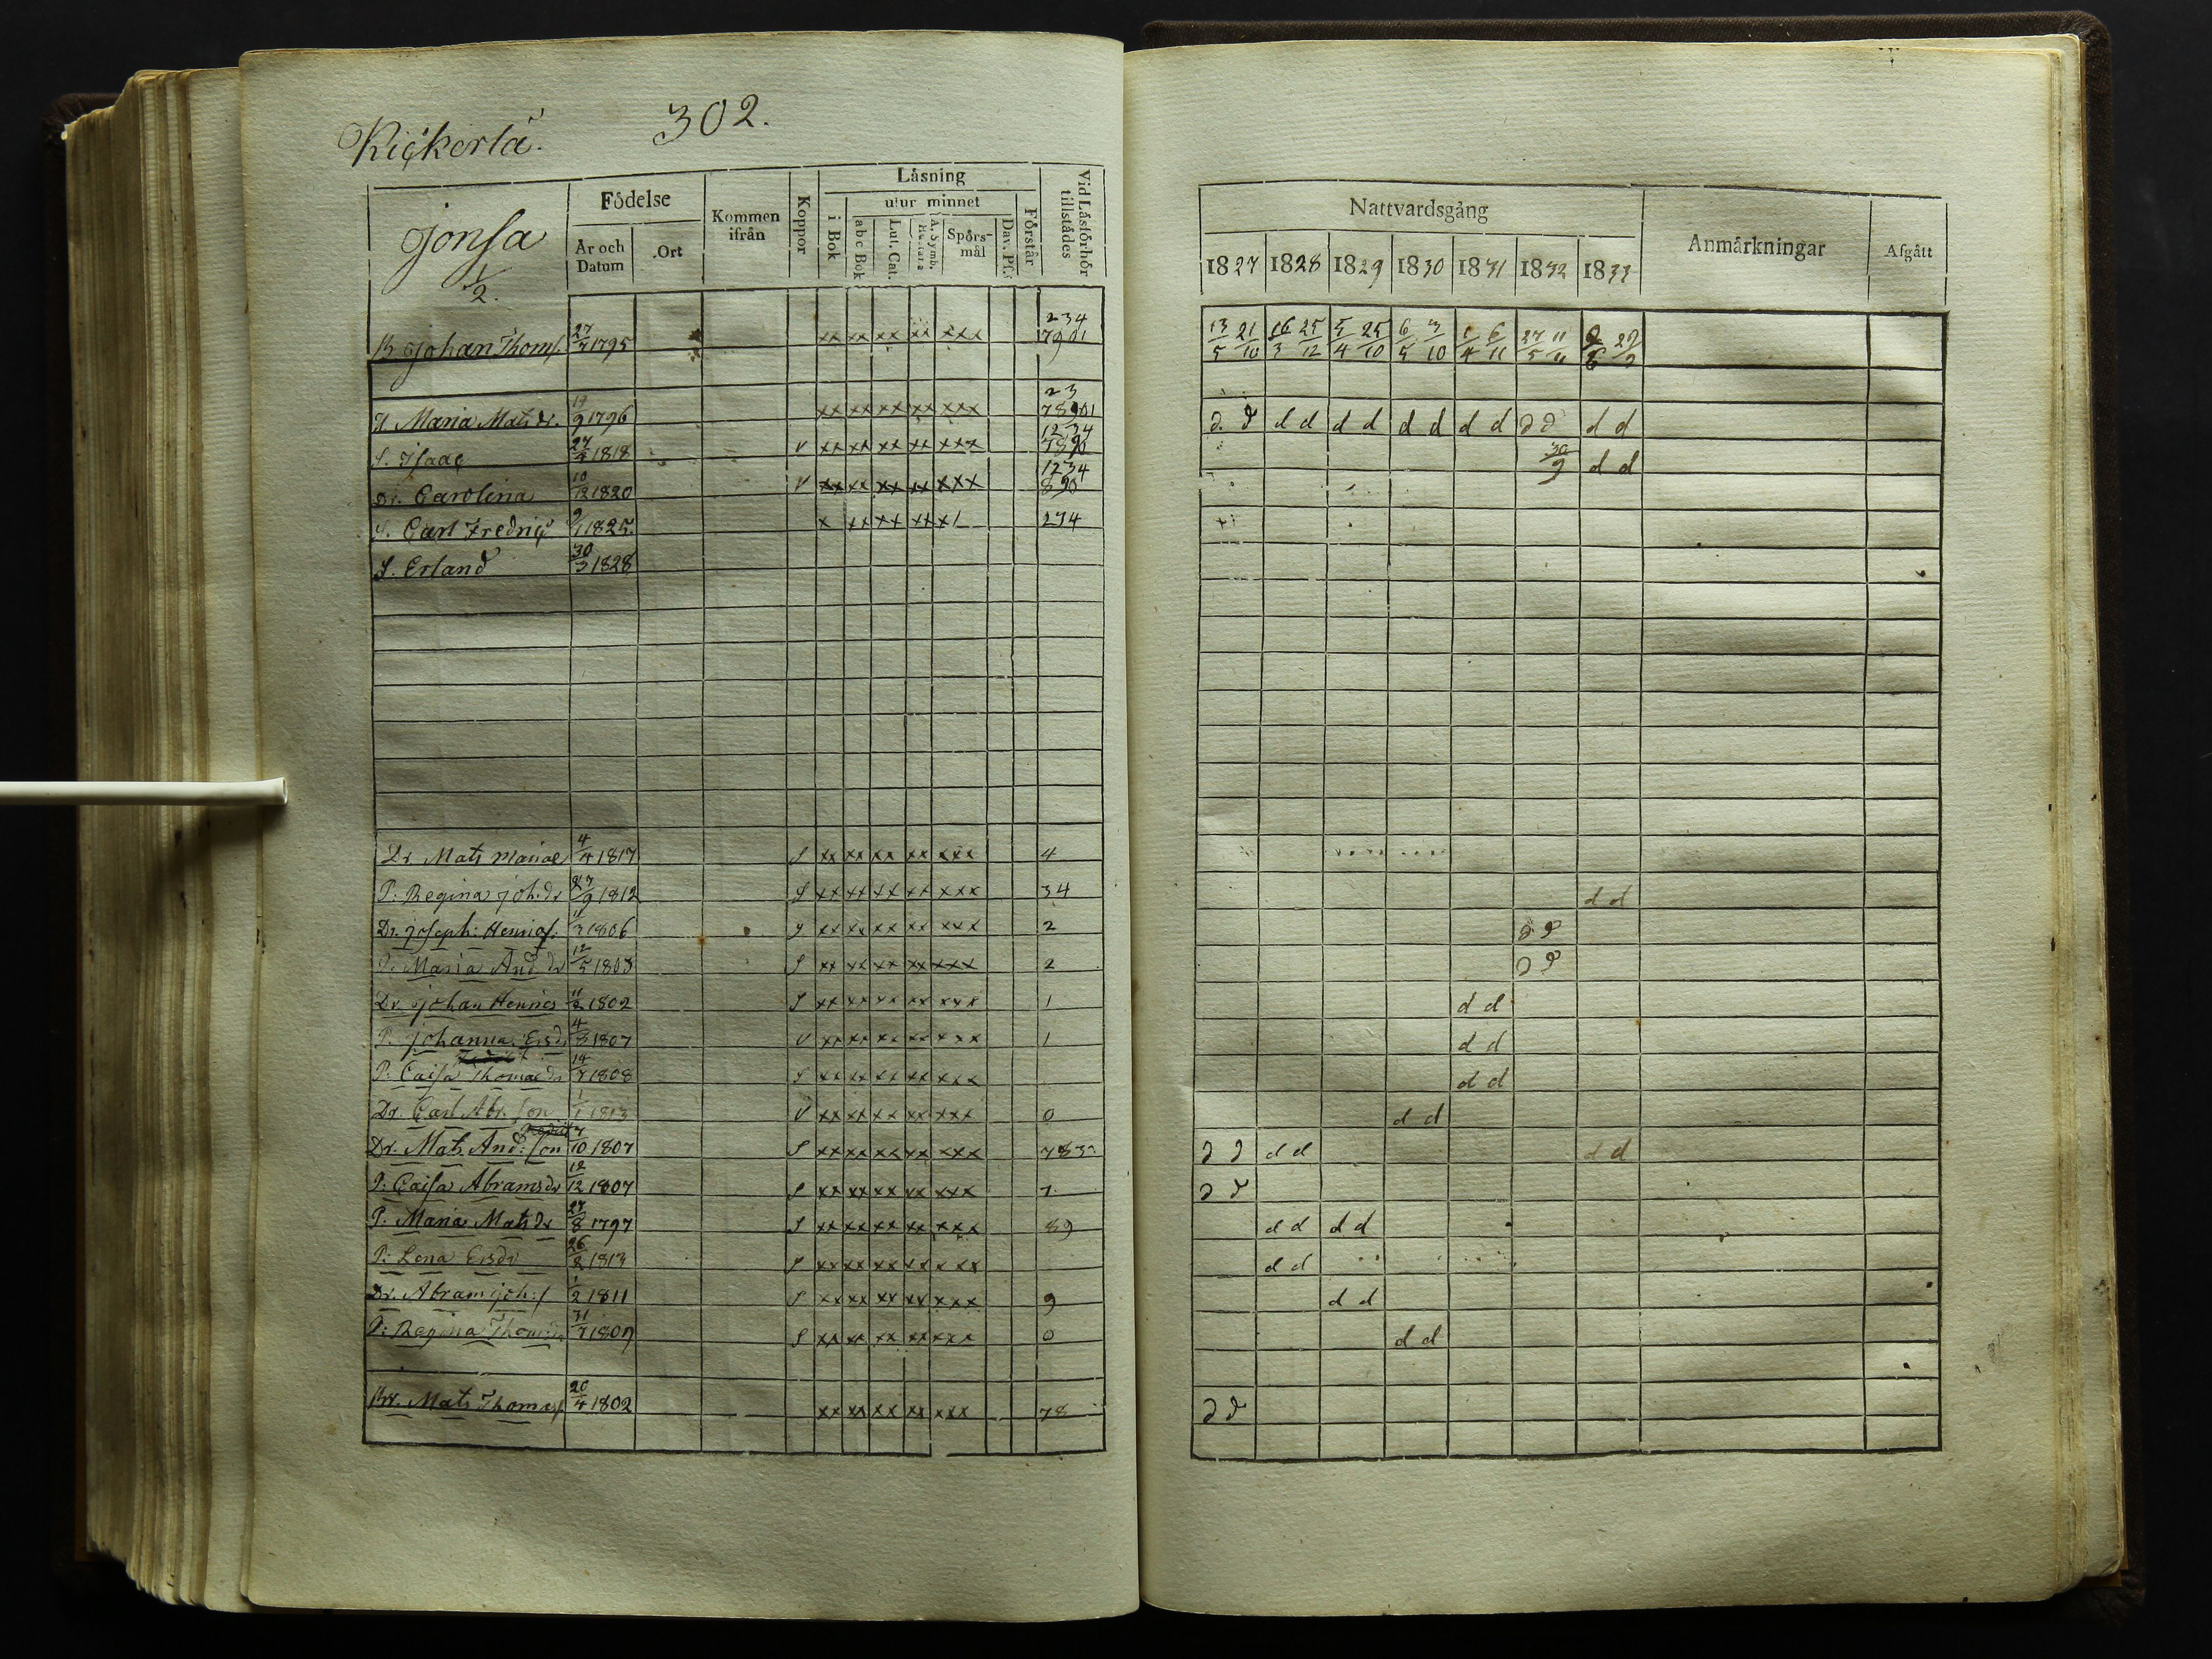 302.
Kickerlä.
Jonsa
1/2.
Födelse
År och Datum
Ort
Kommen ifrån
Koppor
Läsning
i Bok
utur minnet
abc Bok
Lut. Cat.
Spörs-mål
Dav. Ps.
Förstår
Vid Läsförhör tillstådes
Nattvardsgång
1827 1828 1829 1830 1831 1832 1833
Anmärkningar
Afgått
B. Johan Thoms. 27/7 1795 xx xx xx xx xxx 234 7901 13/5 21/10 16/3 25/12 5/4 25/10 6/5 3/10 1/4 6/11 27/5 11/11
H. Maria Mats dr. 19/9 1796 xx xx xx xx xxx 23 78901 d. d d d d d d d d d d d d d
S. Isaac 27/4 1818 v xx xx xx xx xxx 1234 7890 30/9 d d
Dr. Carolina 10/12 1820 v xx xx xx xx xxx 1234 890
S. Carl Fredric 9/1 1825. x xx xx xx x/ 234
S. Erland 30/3 1828
Dr. Mats 4/4 1817 S xx xx xx xx xxx 4
P: Regina Joh:dr 27/9 1812 S xx xx xx xx xxx 34 d d
Dr. Joseph: Henrics. 11/3 1806 S xx xx xx xx xxx 2 d d
P. Maria And dr 12/5 1803 S xx xx xx xx xxx 2 d d
Dr. Johan Henrics 11/2 1802 S xx xx xx xx xxx 1 d d
P. Johanna Ersdr 4/3 1807 v xx xx xx xx xxx 1 d d
P: Caisa Thomaedr 14/7 1808 S xx xx xx xx xxx d d
Dr. Carl Abr. son 1/1 1813 v xx xx xx xx xxx 0 d d
Dr. Mats And: son 7/10 1807 S xx xx xx xx xxx 783 d d d d d d
P: Caisa Abramsdr 12/12 1807 S xx xx xx xx xxx 7. d d
P. Maria Matsdr 27/8 1797 S xx xx xx xx xxx 89 d d d d
P: Lena Ersdr 26/2 1813 S xx xx xx xx xxx d d
Dr. Abram Joh:s 1/2 1811 S xx xx xx xx xxx 9 d d
P: Regina Thomsdr 31/7 1807 S xx xx xx xx xxx 0 d d
Br. Mats Thomas. 20/4 1802 xx xx xx xx xxx 78 d d